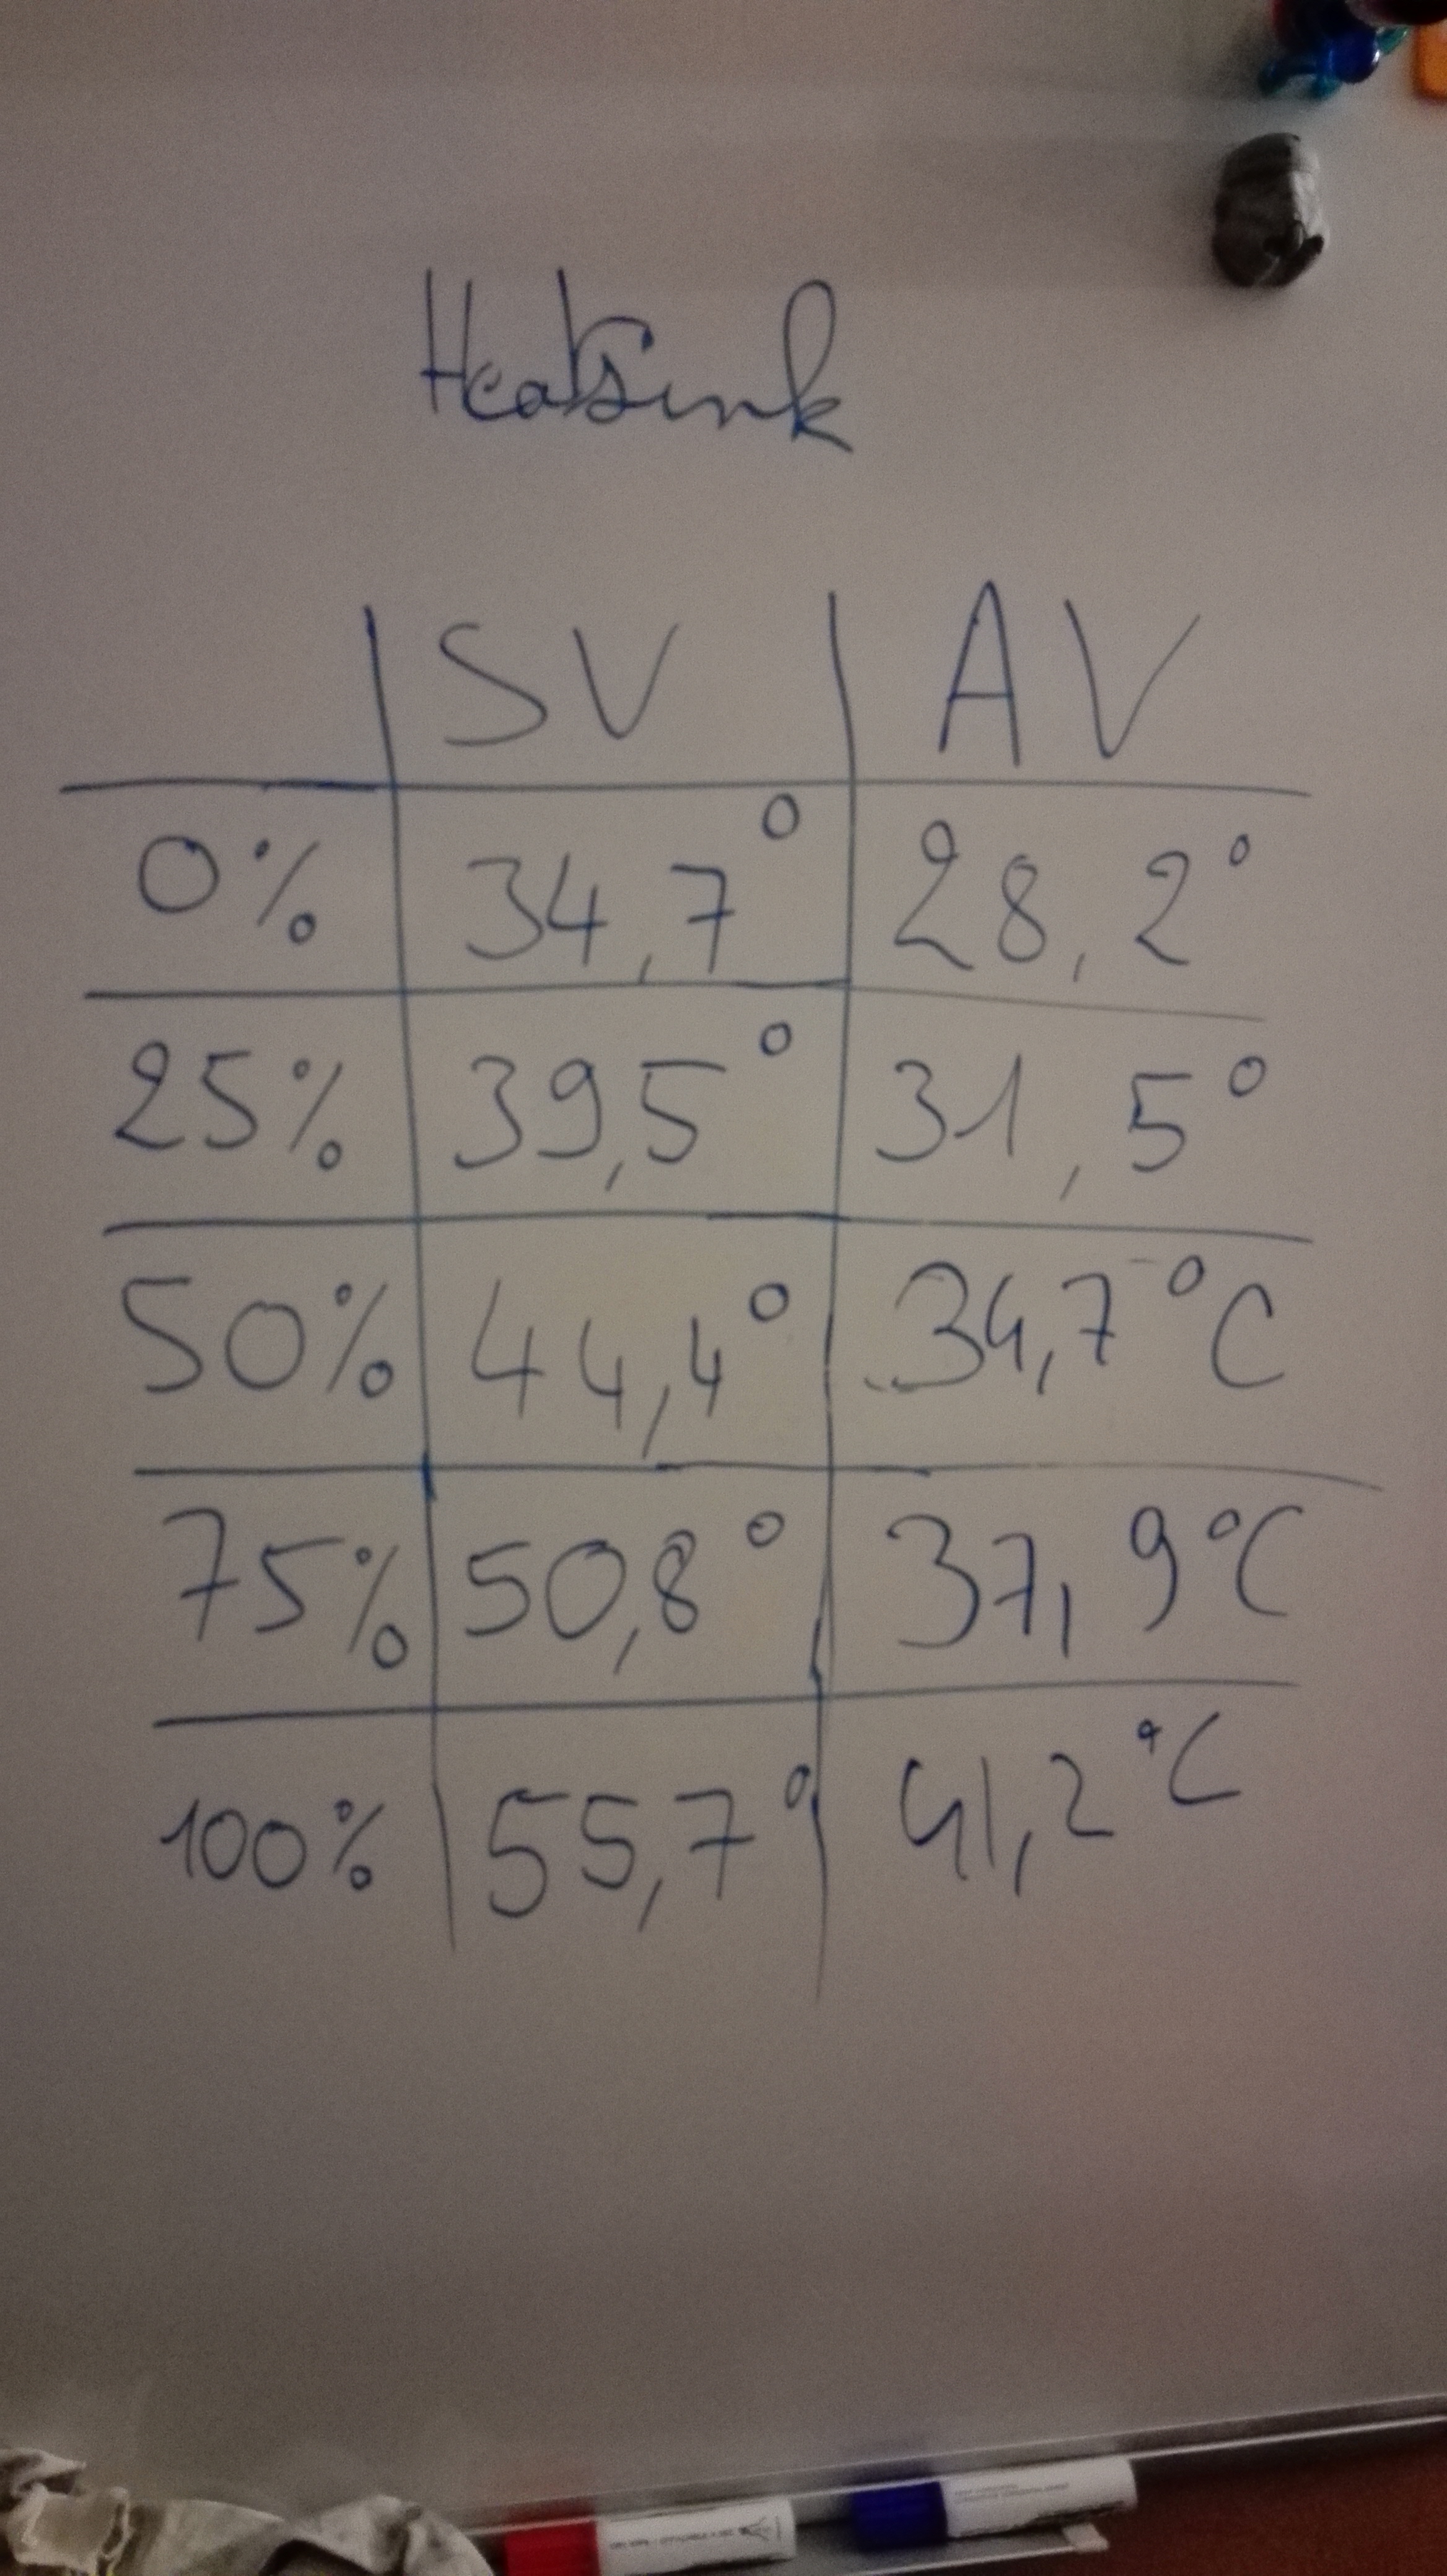 Heatsink
SV AV
0% 34,7° 28,2°
25% 39,5° 31,5°
50% 44,4° 34,7°C
75% 50,8° 37,9°C
100% 55,7° 41,2°C